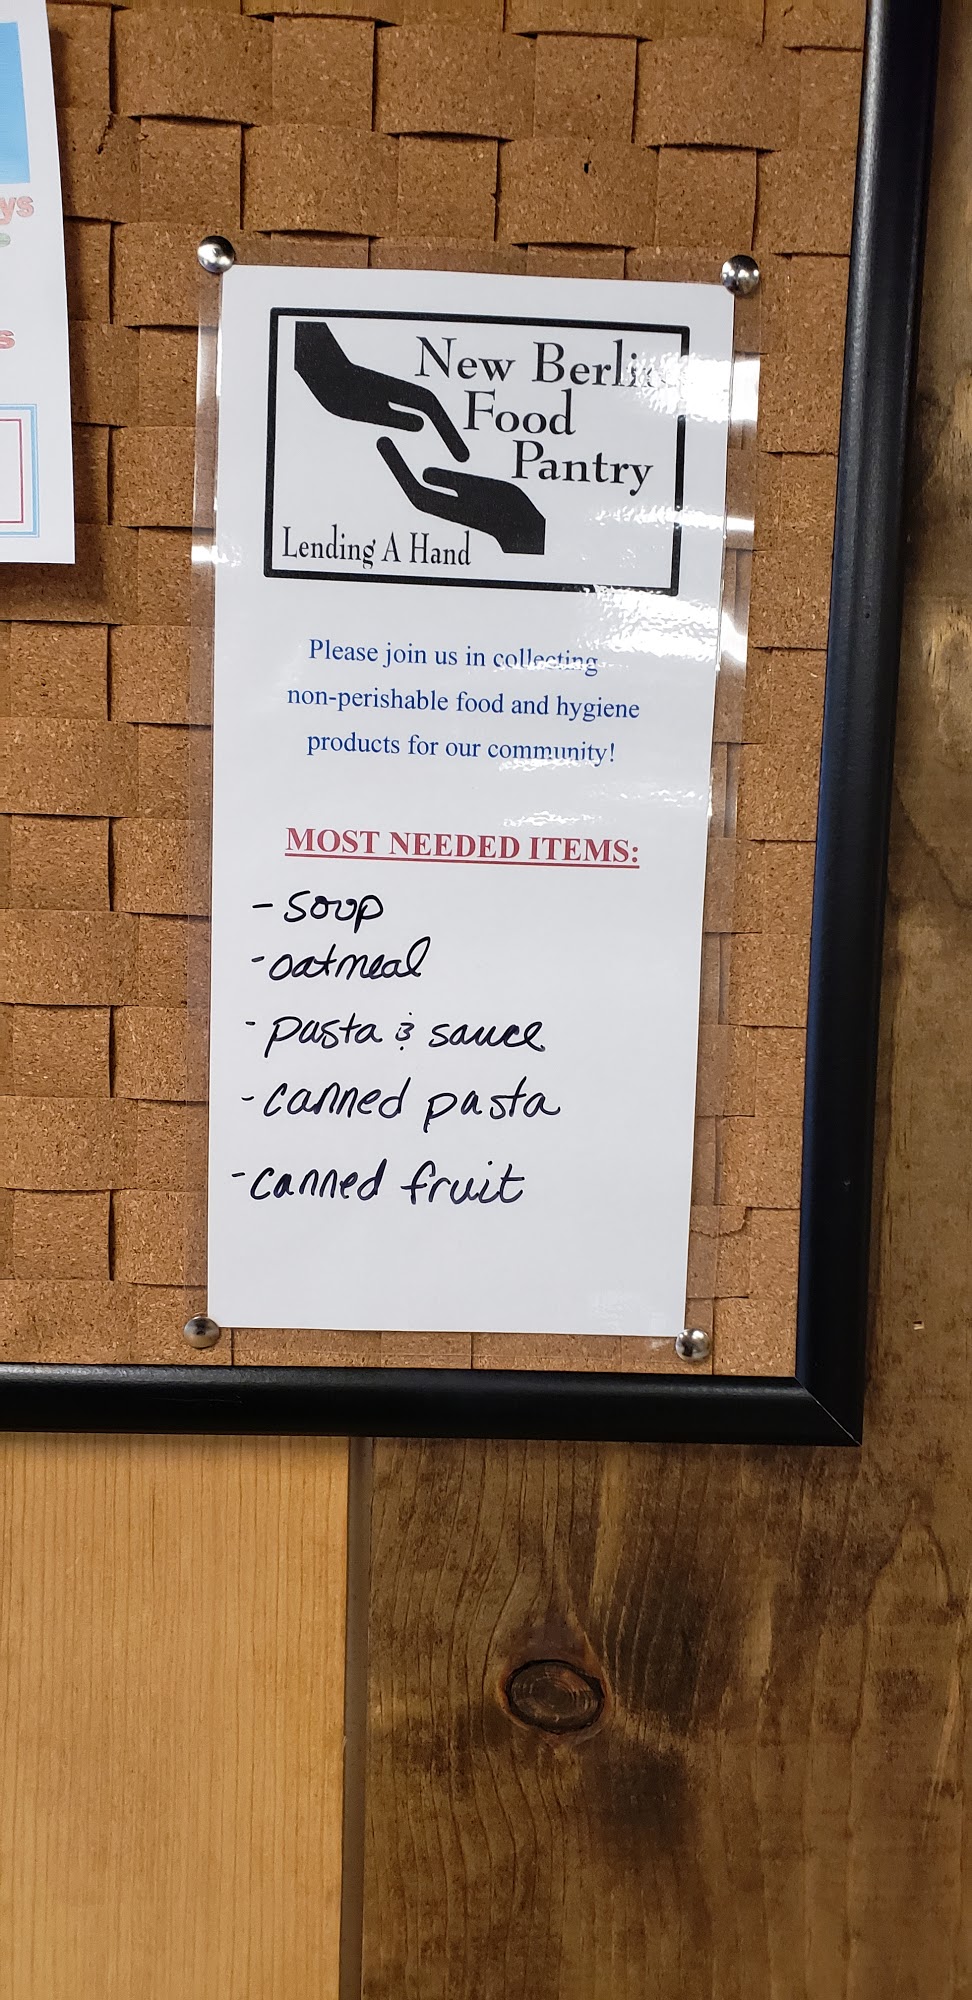 ys
s
New Berlin
Food
Pantry
Lending A Hand
Please join us in collecting
non-perishable food and hygiene
products for our community!
MOST NEEDED ITEMS:
- soup
- oatmeal
- pasta & sauce
- canned pasta
- canned fruit